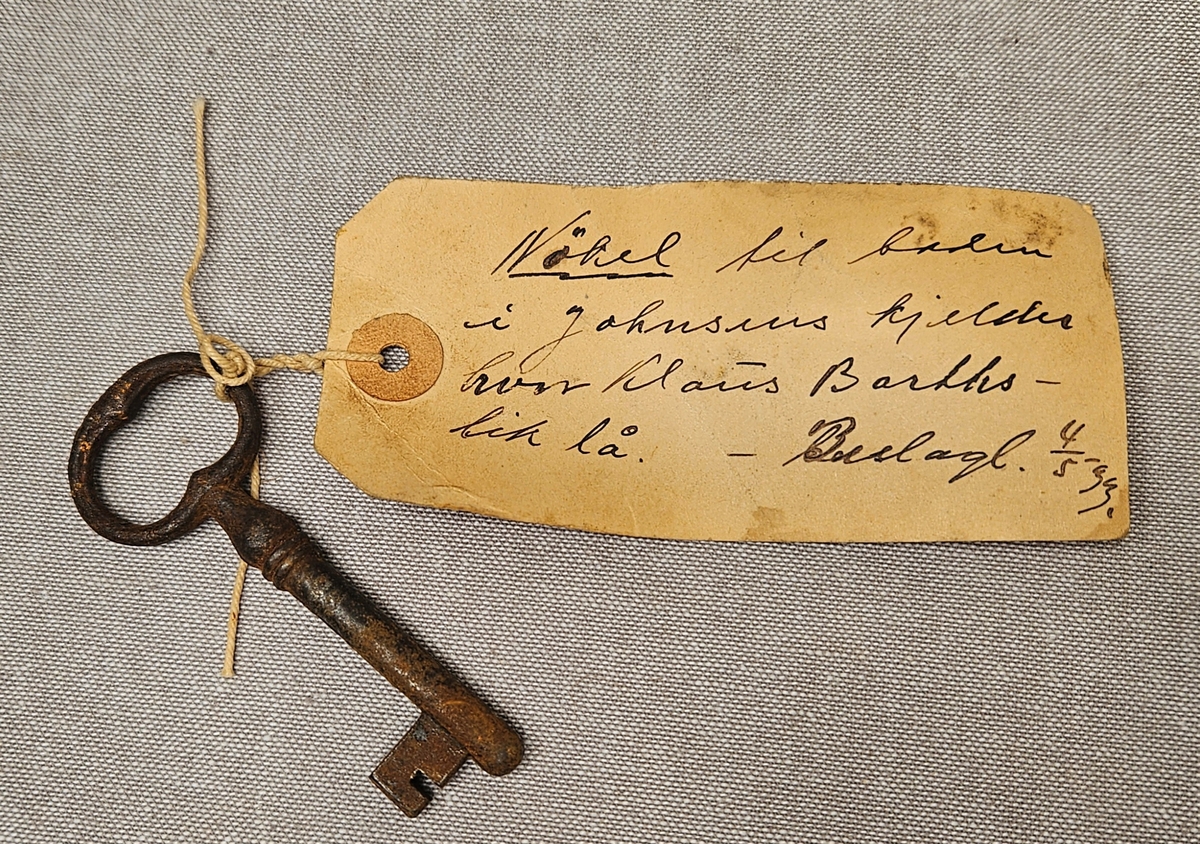 Nökel til boden
i Johnsens kjelder
hvor Klaus Barths-
lik lå. - Beslagl. 4/5-99.